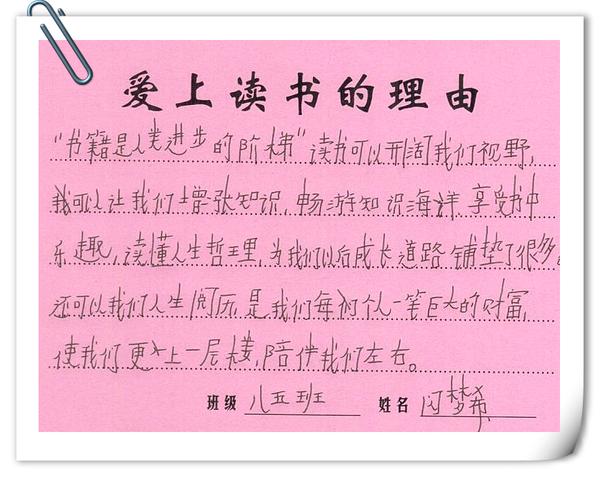 爱上读书的理由
“书籍是人类进步的阶梯”读书可以开阔我们视野,
我可以让我们增张知识,畅游知识海洋享受书中
乐趣,读懂人生哲理,为我们以后成长道路铺垫了很多。
还可以我们人生阅历,是我们每个人一笔巨大的财富,
使我们更上一层楼,陪伴我们左右。
班级 八五班 姓名 闪梦希